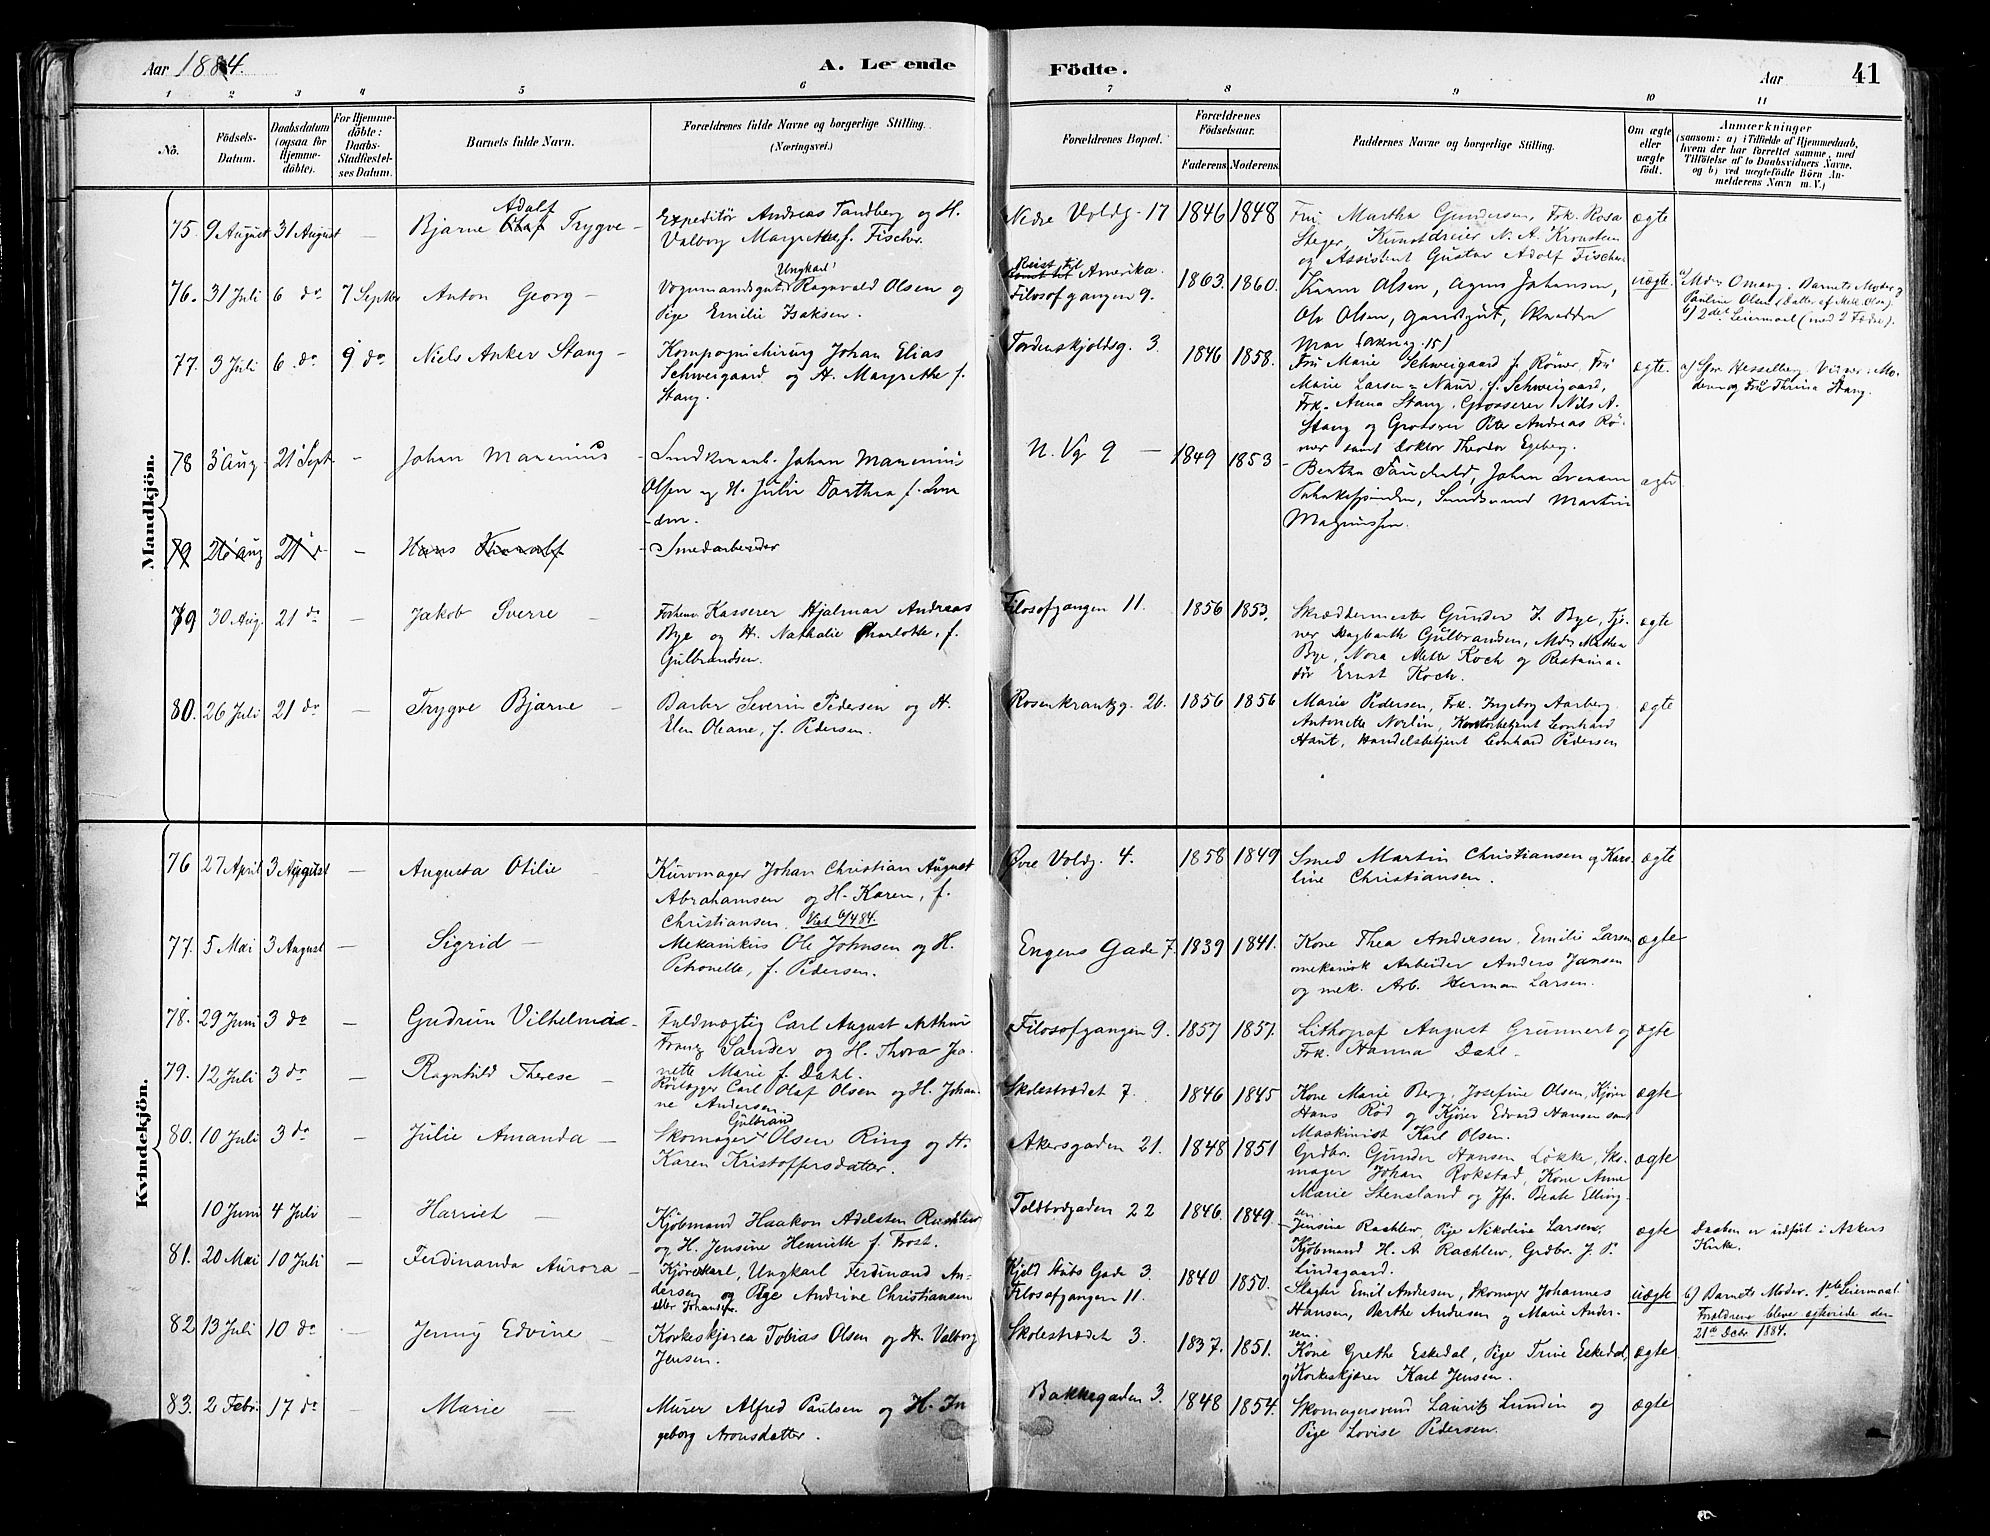 Aar 1884.
A. Levende
Födte.
Aar
41
1 2 3 4 5 6 7 8 9 10 11
No.
Födsels-
Datum.
Daabsdatum
(ogsaa for
Hjemme-
döbte).
For Hjemme-
döbte:
Daabs-
Stadfæstel-
ses Datum.
Barnets fulde Navn.
Forældrenes fulde Navne og borgerlige Stilling.
(Næringsvei.)
Forældrenes Bopæl.
Forældrenes
Födselsaar.
Faderens. Moderens.
Faddernes Navne og borgerlige Stilling.
Om ægte
eller
uægte
födt.
Anmærkninger
(saasom: a) i Tilfælde af Hjemmedaab,
hvem der har forrettet samme, med
Tilföielse af to Daabsvidners Navne,
og b) ved uægtefödte Börn An-
melderens Navn m. V.)
Mandkjön.
75. 9 August 31 August — Bjarne Olaf Trygve —
Adolf
Expeditör Andreas Tandberg og H.
Valborg Margrethe f. Fischer.
Nedre Voldg. 17 1846 1848
Fru Martha Gundersen, Frk. Rosa
Steger, Kunstdreier N. A. Kronsteen
og Assistent Gustav Adolf Fischer
ægte
76. 31 Juli 6 do 7 Septbr Anton Georg —
Ungkarl
Vognmandsgut Ragnvald Olsen og
Pige Emilie Isaksen.
Reist til
Amerika.
Filosofgangen 9. 1863. 1860.
Karen Olsen, Agnes Johansen,
Ole Olsen, gaardsgut, Skrædder
uægte.
a) Mdm Omang. Barnets Moder og
Pauline Olsen (Datter af Mell. Olsen).
b) 2det Leiermaal (med 2 Fædre).
77. 3 Juli 6 do 9 do Niels Anker Stang —
Kompagnichirurg Johan Elias
Schweigaard og H. Margrethe f.
Stang.
Tordenskjoldsg. 3. 1846 1858.
Fru Marie Schweigaard f. Römer, Fru
Marie Larsen-Naur, f. Schweigaard,
Frk. Anna Stang, Grosserer Nils A.
Stang og Grosserer Peter Andreas Rö-
mer samt Doktor Theodor Egeberg.
ægte.
a) Spr. Hesselberg. Vidner: Mo-
deren og Fru Thrina Stang.
78 3 Aug 21 Sept — Johan Marenius
Smedkmanb. Johan Marenius
Olsen og H. Julie Dorthea f.
N. Vg 9 — 1849 1853
Bertha Fauchald, Johan
Tobaksspinder, Smedsvend Martin
Magnussen.
ægte
79 26 Aug 21 do — Hans Thoralf
Smedarbeider
79 30 Aug. 21 do — Jakob Sverre —
Forhenv. Kasserer Hjalmar Andreas
Bye og H. Nathalie Charlotte, f.
Gulbrandsen.
Filosofgangen 11. 1856 1853.
Skræddermester Gunder J. Bye, Tje-
ner Dagbarth Gulbrandsen, Mdm Mathea
Bye, Nora Alette Koch og Restaura-
tör Ernst Koch.
ægte
80. 26 Juli 21 do — Trygve Bjarne —
Barber Severin Pedersen og H.
Elen Oleane, f. Pedersen.
Rosenkrantzg. 26. 1856 1856
Marie Pedersen, Frk. Ingeborg Aarberg.
Antonette Norlin, Kontorbetjent Leonhard
Haut, Handelsbetjent Leonhard Pedersen
ægte
Kvindekjön.
76 27 April 3 August — Augusta Otilie —
Kurvmager Johan Christian August
Abrahamsen og H. Karen, f.
Christiansen. Viet 6/4 84.
Øvre Voldg. 4. 1858 1849
Smed Martin Christiansen og Karo-
line Christiansen.
ægte
77. 5 Mai 3 August — Sigrid —
Mekanikus Ole Johnsen og H.
Petronelle, f. Pedersen.
Engens Gade 7. 1839 1841.
Kone Thea Andersen. Emilie Larsen
mekanisk Arbeider Anders Jansen
og mek. Arb. Herman Larsen.
ægte
78. 29 Juni 3 do — Gudrun Vilhelmine —
Fuldmægtig Carl August Arthur
Franz Sander og H. Thora Ja-
nette Marie f. Dahl.
Filosofgangen 9. 1857 1857.
Lithograf August Grünnert og
Frk. Hanna Dahl —
ægte
79. 12 Juli 3 do — Ragnhild Therese —
Rörlægger Carl Olaf Olsen og H. Johan-
ne Andersen
Skolestrædet 7. 1846 1845
Kone Marie Berg, Josefine Olsen, Kjörer
Hans Röd og Kjörer Edvard Hansen samt
Maskinist Karl Olsen.
ægte
80. 10 Juli 3 do — Julie Amanda —
Gulbrand
Skomager Olsen Ring og H.
Karen Kristoffersdatter.
Akersgaden 21. 1848 1851
Grdbr. Gunder Hansen Løkke, Sko-
mager Johan Rokstad, Kone Anne
Marie Stensland og Jfr. Beate Elling-
sen.
ægte
10 Juni 4 Juli — Harriet —
Kjöbmand Haakon Adelsten Rachlew
og H. Jensine Henriette f. Frost.
Toldbodgaden 22 1846. 1849
Jensine Rachlew, Pige Nikoline Larsen,
Kjöbmand H. A. Rachlew, Grdbr. J. P.
Lindegaard.
ægte
Daaben er udfört i Askers
Kirke.
81. 20 Mai 10 Juli — Ferdinanda Aurora —
Kjörekarl, Ungkarl Ferdinand An-
dersen og Pige Andrine Christiansen
eller Johansen.
Kjeld Stubs Gade 3.
Filosofgangen 11. 1840 1850.
Slagter Emil Andresen, Skomager Johannes
Hansen, Berthe Andresen og Marie Ander-
sen.
uægte
b) Barnets Moder. 1ste Leiermaal.
Forældrene bleve egteviede den
21de Decbr. 1884.
82 13 Juli 10 do — Jenny Edvine —
Korkeskjærer Tobias Olsen og H. Valborg
Jensen.
Skolestrædet 3. 1837. 1851.
Kone Grethe Eskedal, Pige Trine Eskedal,
og Korkeskjærer Karl Jensen.
ægte
83. 2 Febr. 17 do — Marie —
Murer Alfred Paulsen og H. In-
geborg Aronsdatter.
Bakkegaden 3. 1848 1854.
Skomagersvend Lauritz Lundin og
Pige Lovise Pedersen.
ægte